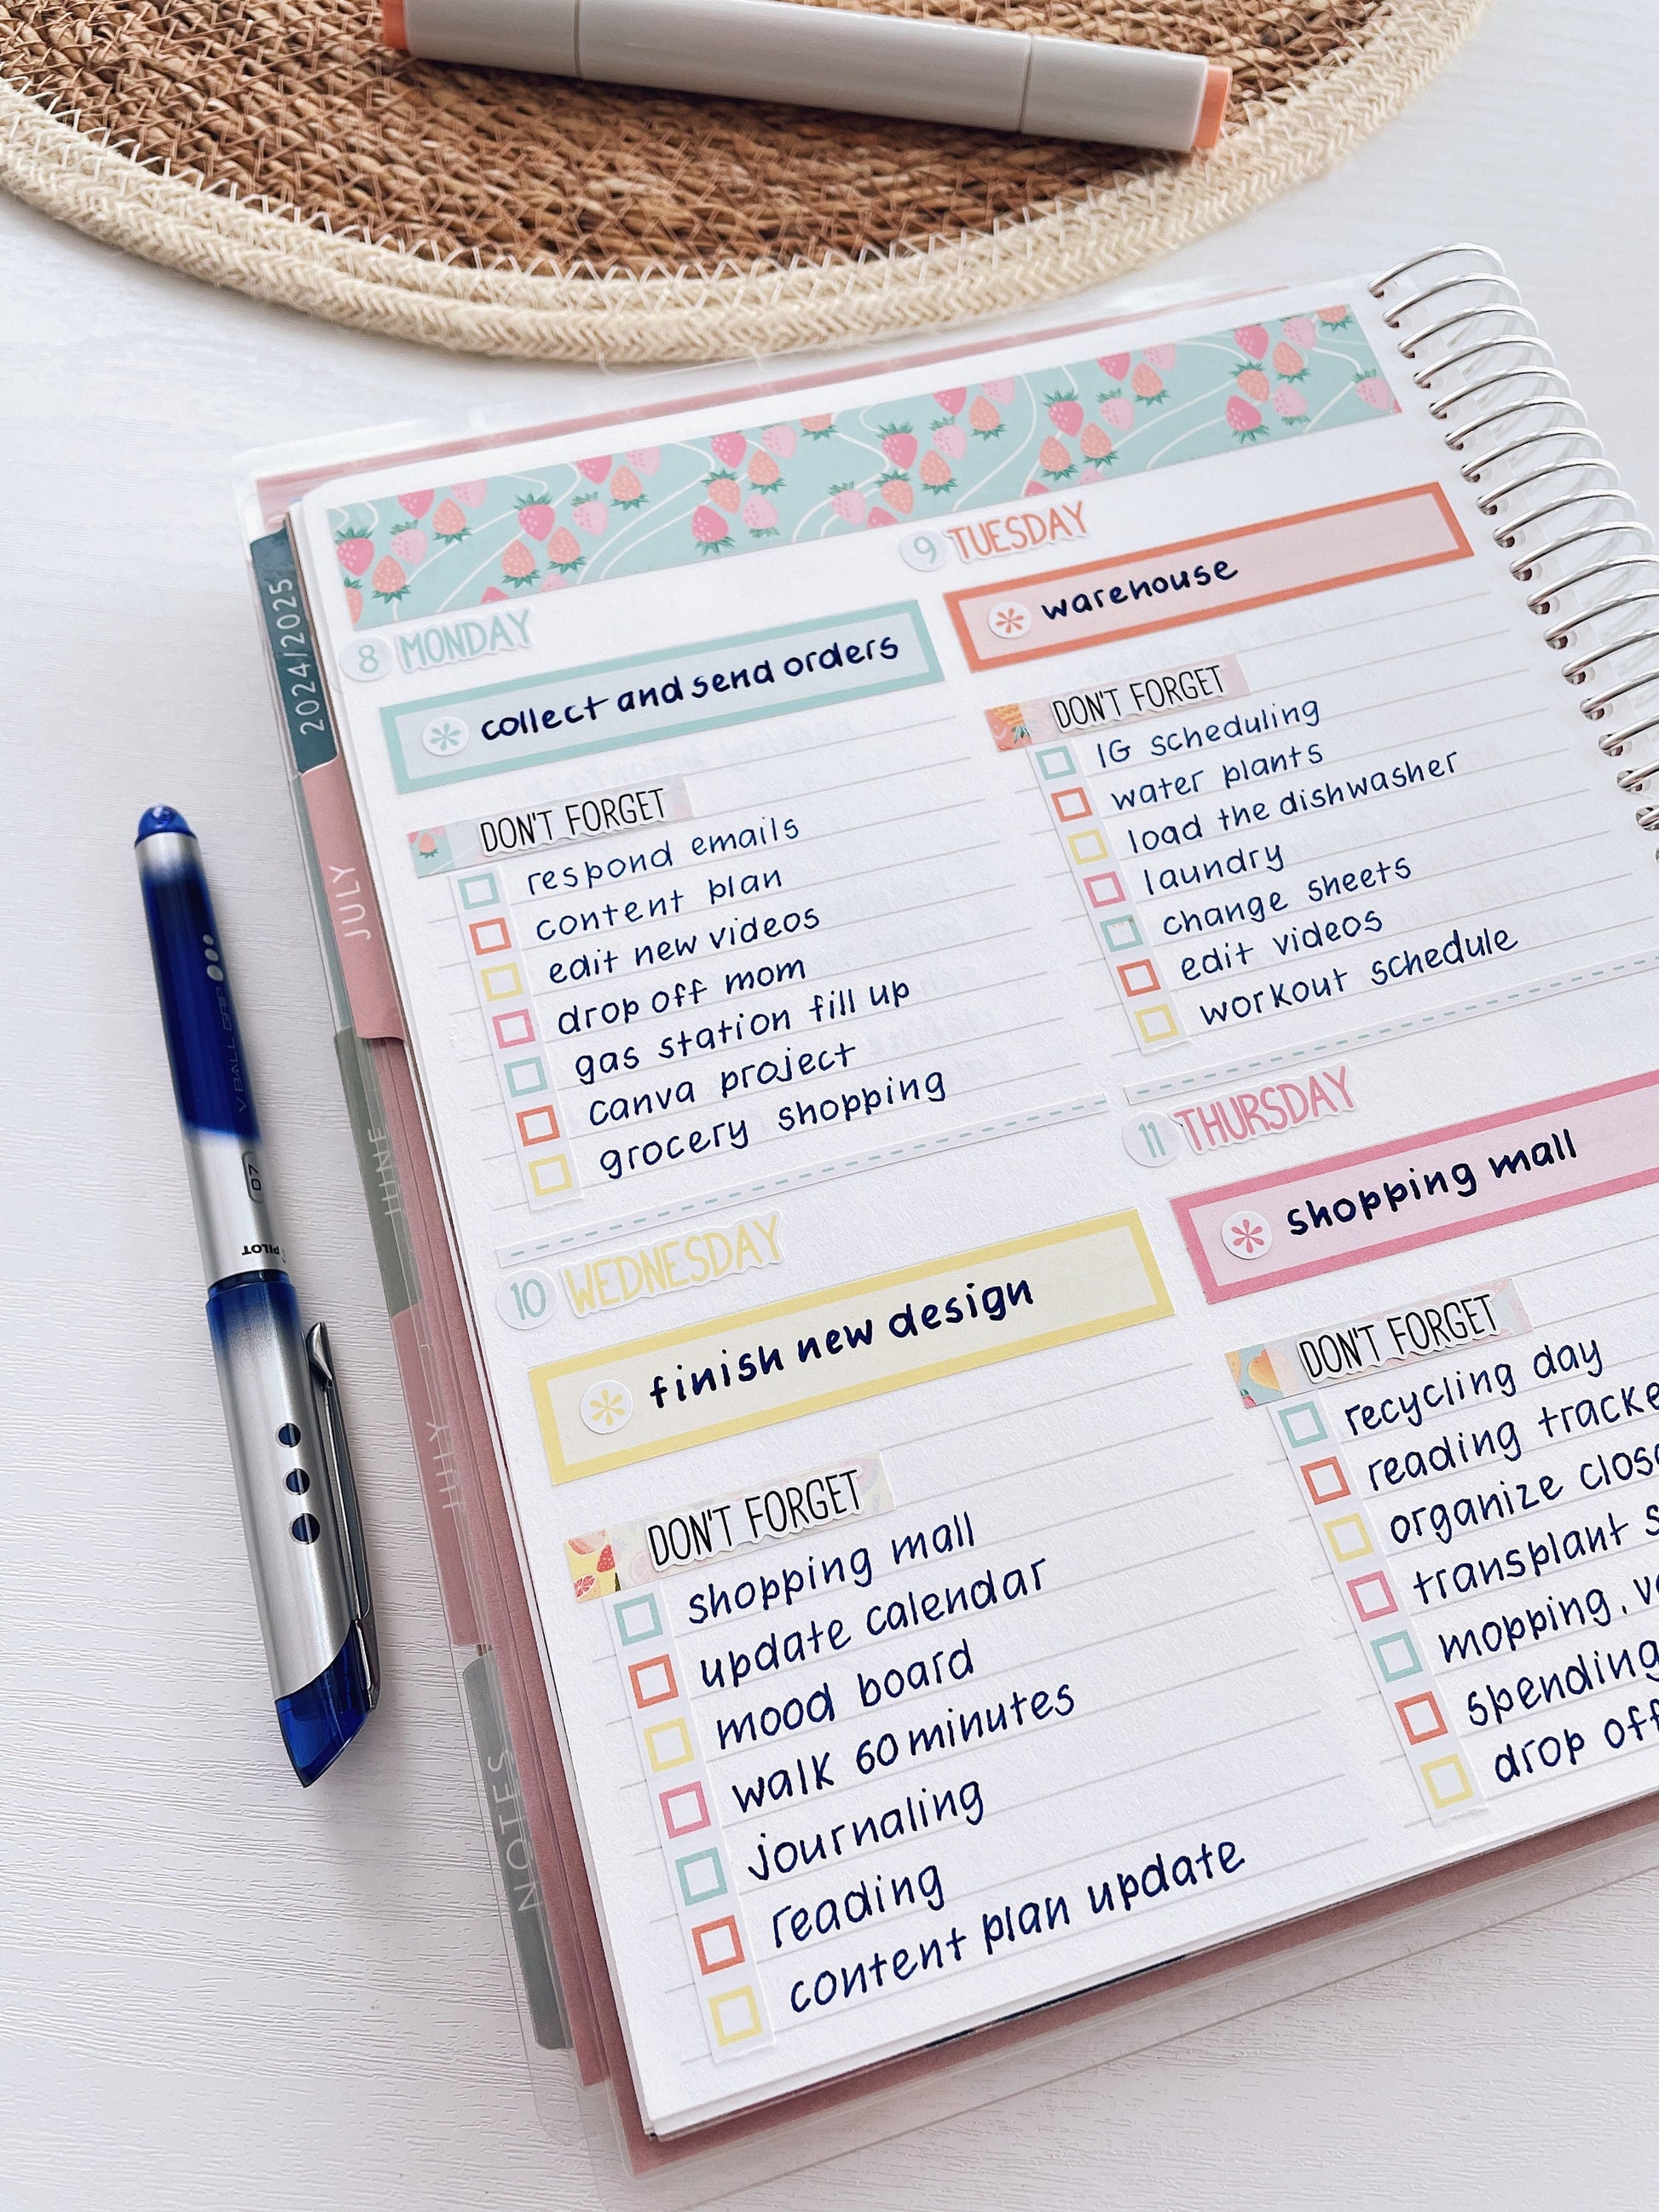 2024/2025
JULY
JUNE
JULY
NOTES
8 MONDAY
collect and send orders
DON'T FORGET
respond emails
content plan
edit new videos
drop off mom
gas station fill up
canva project
grocery shopping
9 TUESDAY
warehouse
DON'T FORGET
IG scheduling
water plants
load the dishwasher
laundry
change sheets
edit videos
workout schedule
10 WEDNESDAY
finish new design
DON'T FORGET
shopping mall
update calendar
mood board
walk 60 minutes
journaling
reading
content plan update
11 THURSDAY
shopping mall
DON'T FORGET
recycling day
reading
organize
transplant
mopping,
spending
drop off
V BALL GRIP
07
PILOT